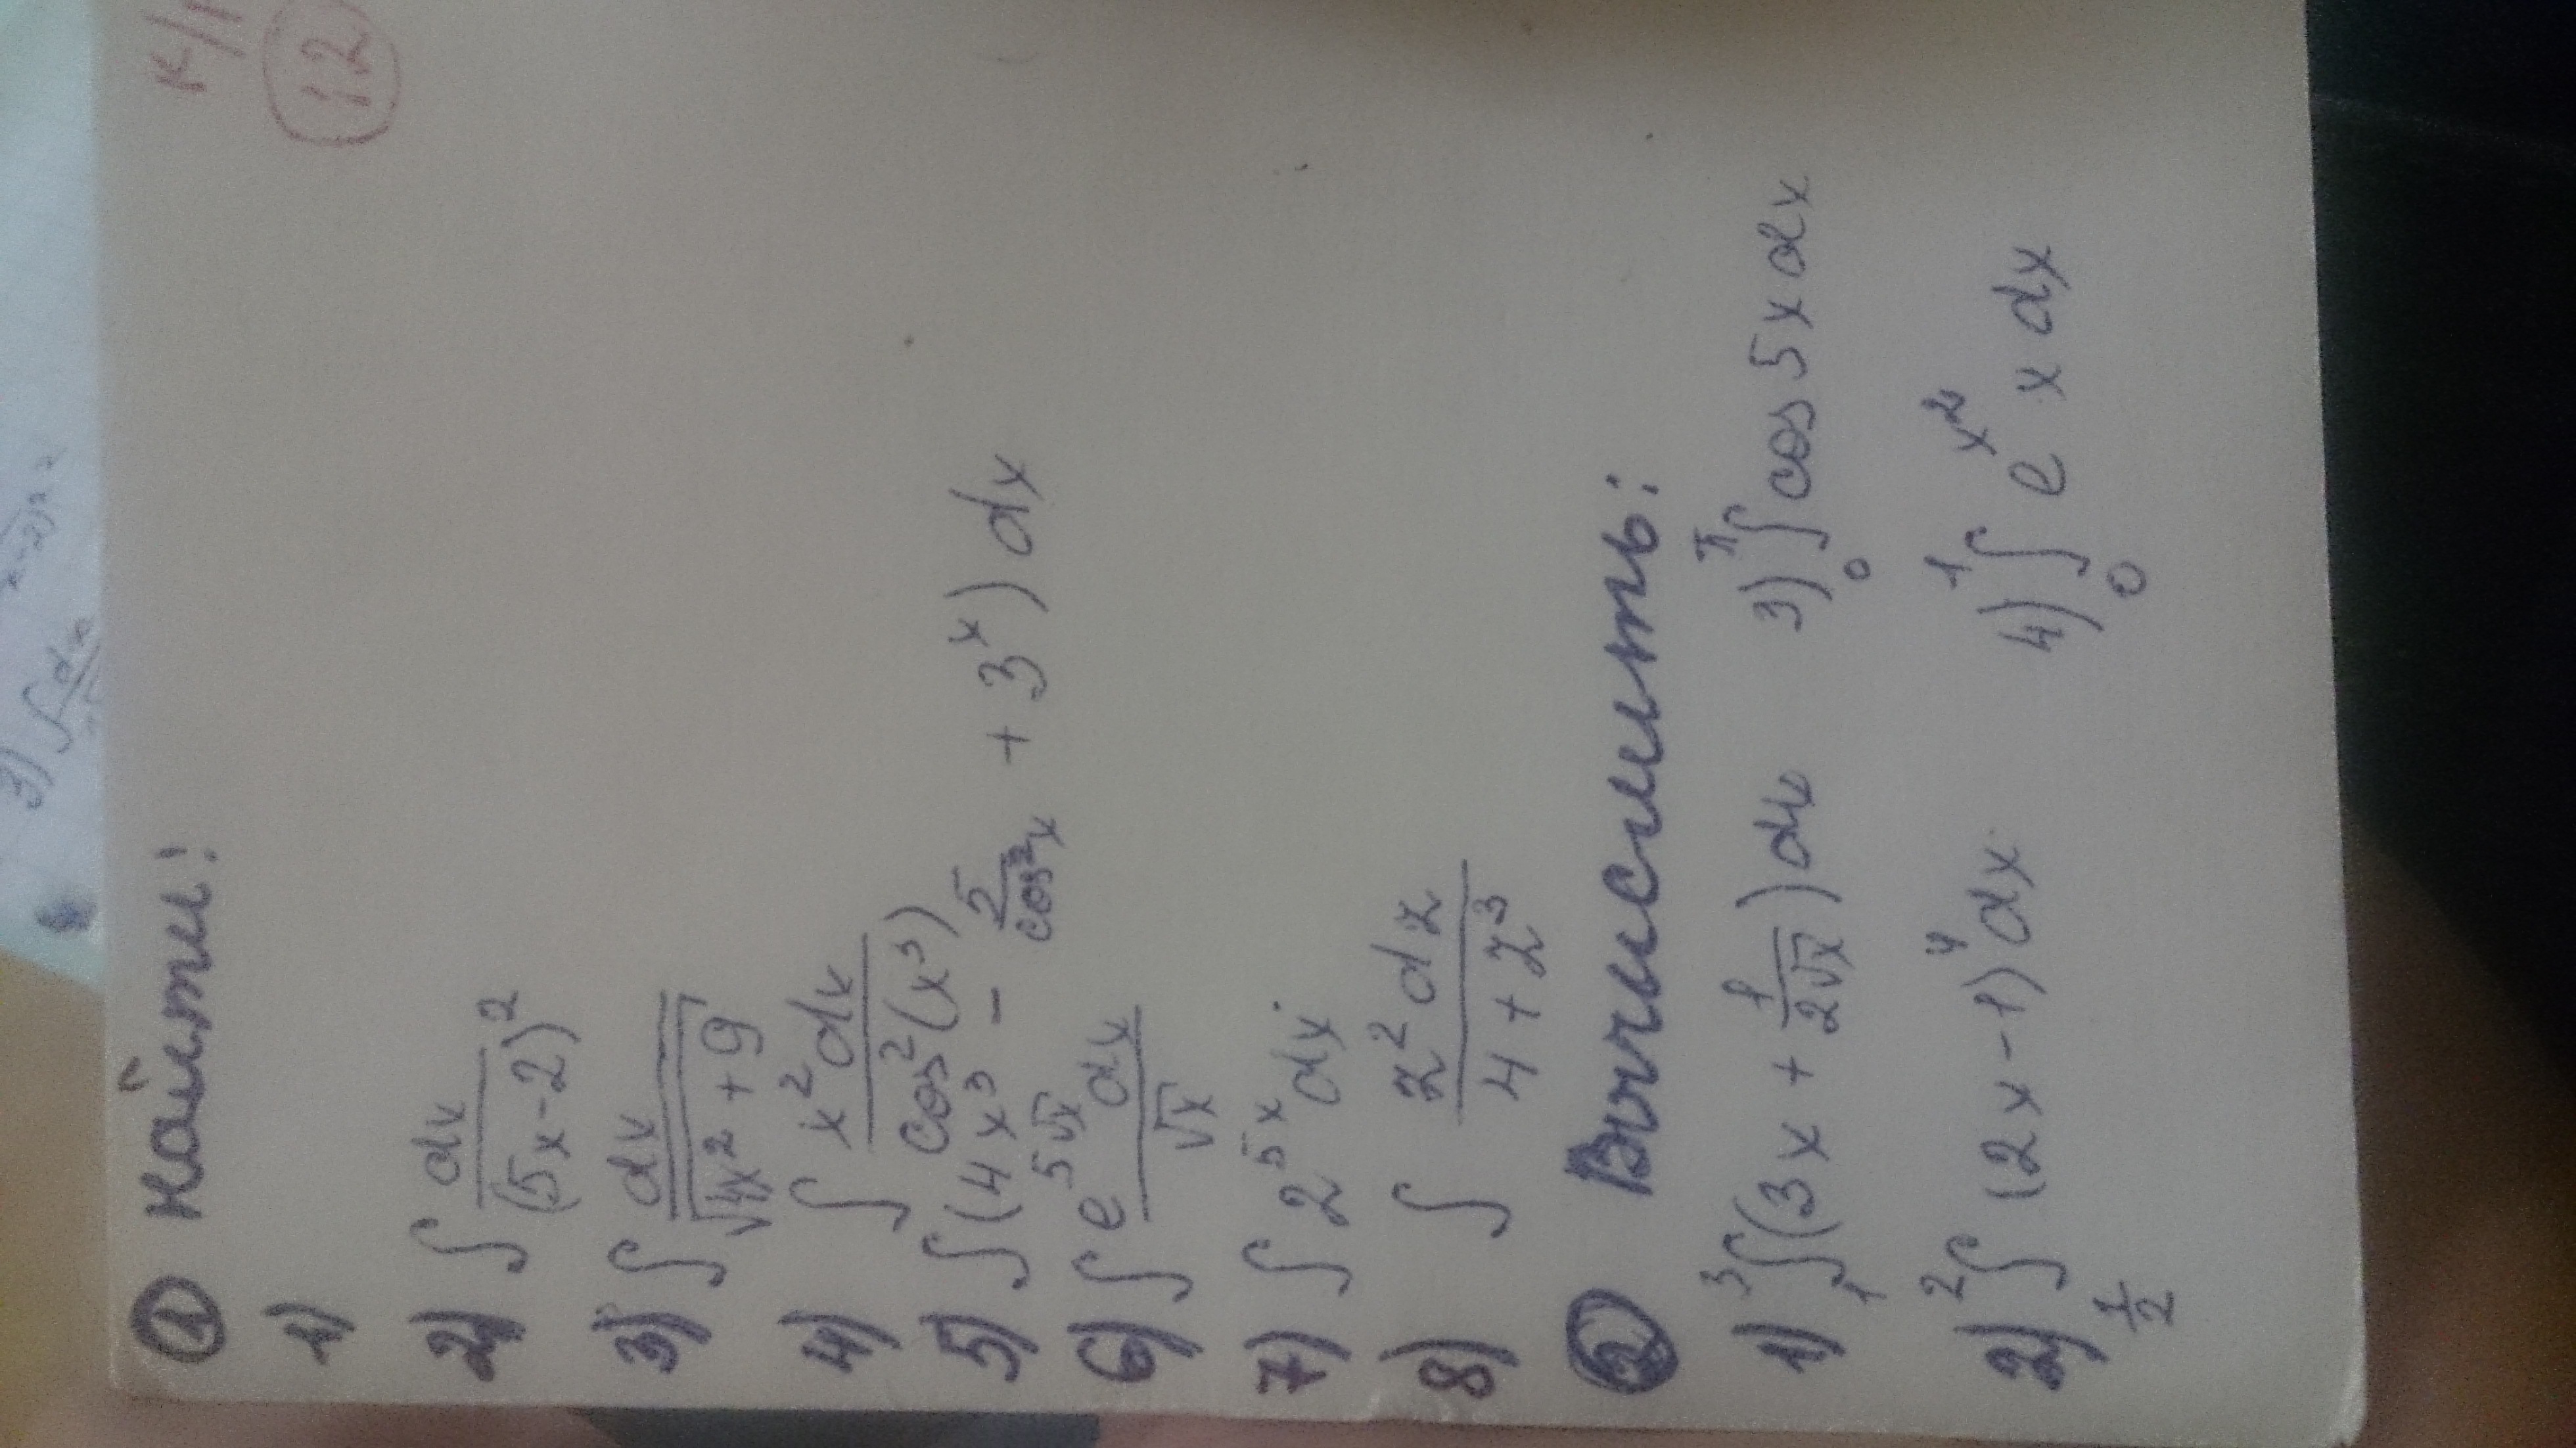 К/
12
① Найти:
1)
2) ∫ dx / (5x-2)²
3) ∫ dx / √(4x²+9)
4) ∫ x² dx / cos²(x³)
5) ∫ (4x³ - 5/cos²x + 3ˣ) dx
6) ∫ e^(5√x) dx / √x
7) ∫ 2^(5x) dx
8) ∫ z² dz / (4 + z³)
② Вычислить:
1) ∫₁³ (3x + 1/(2√x)) dx 3) ∫₀^π cos 5x dx
2) ∫_(1/2)² (2x-1)⁴ dx 4) ∫₀¹ e^(x²) x dx
3) ∫ dx